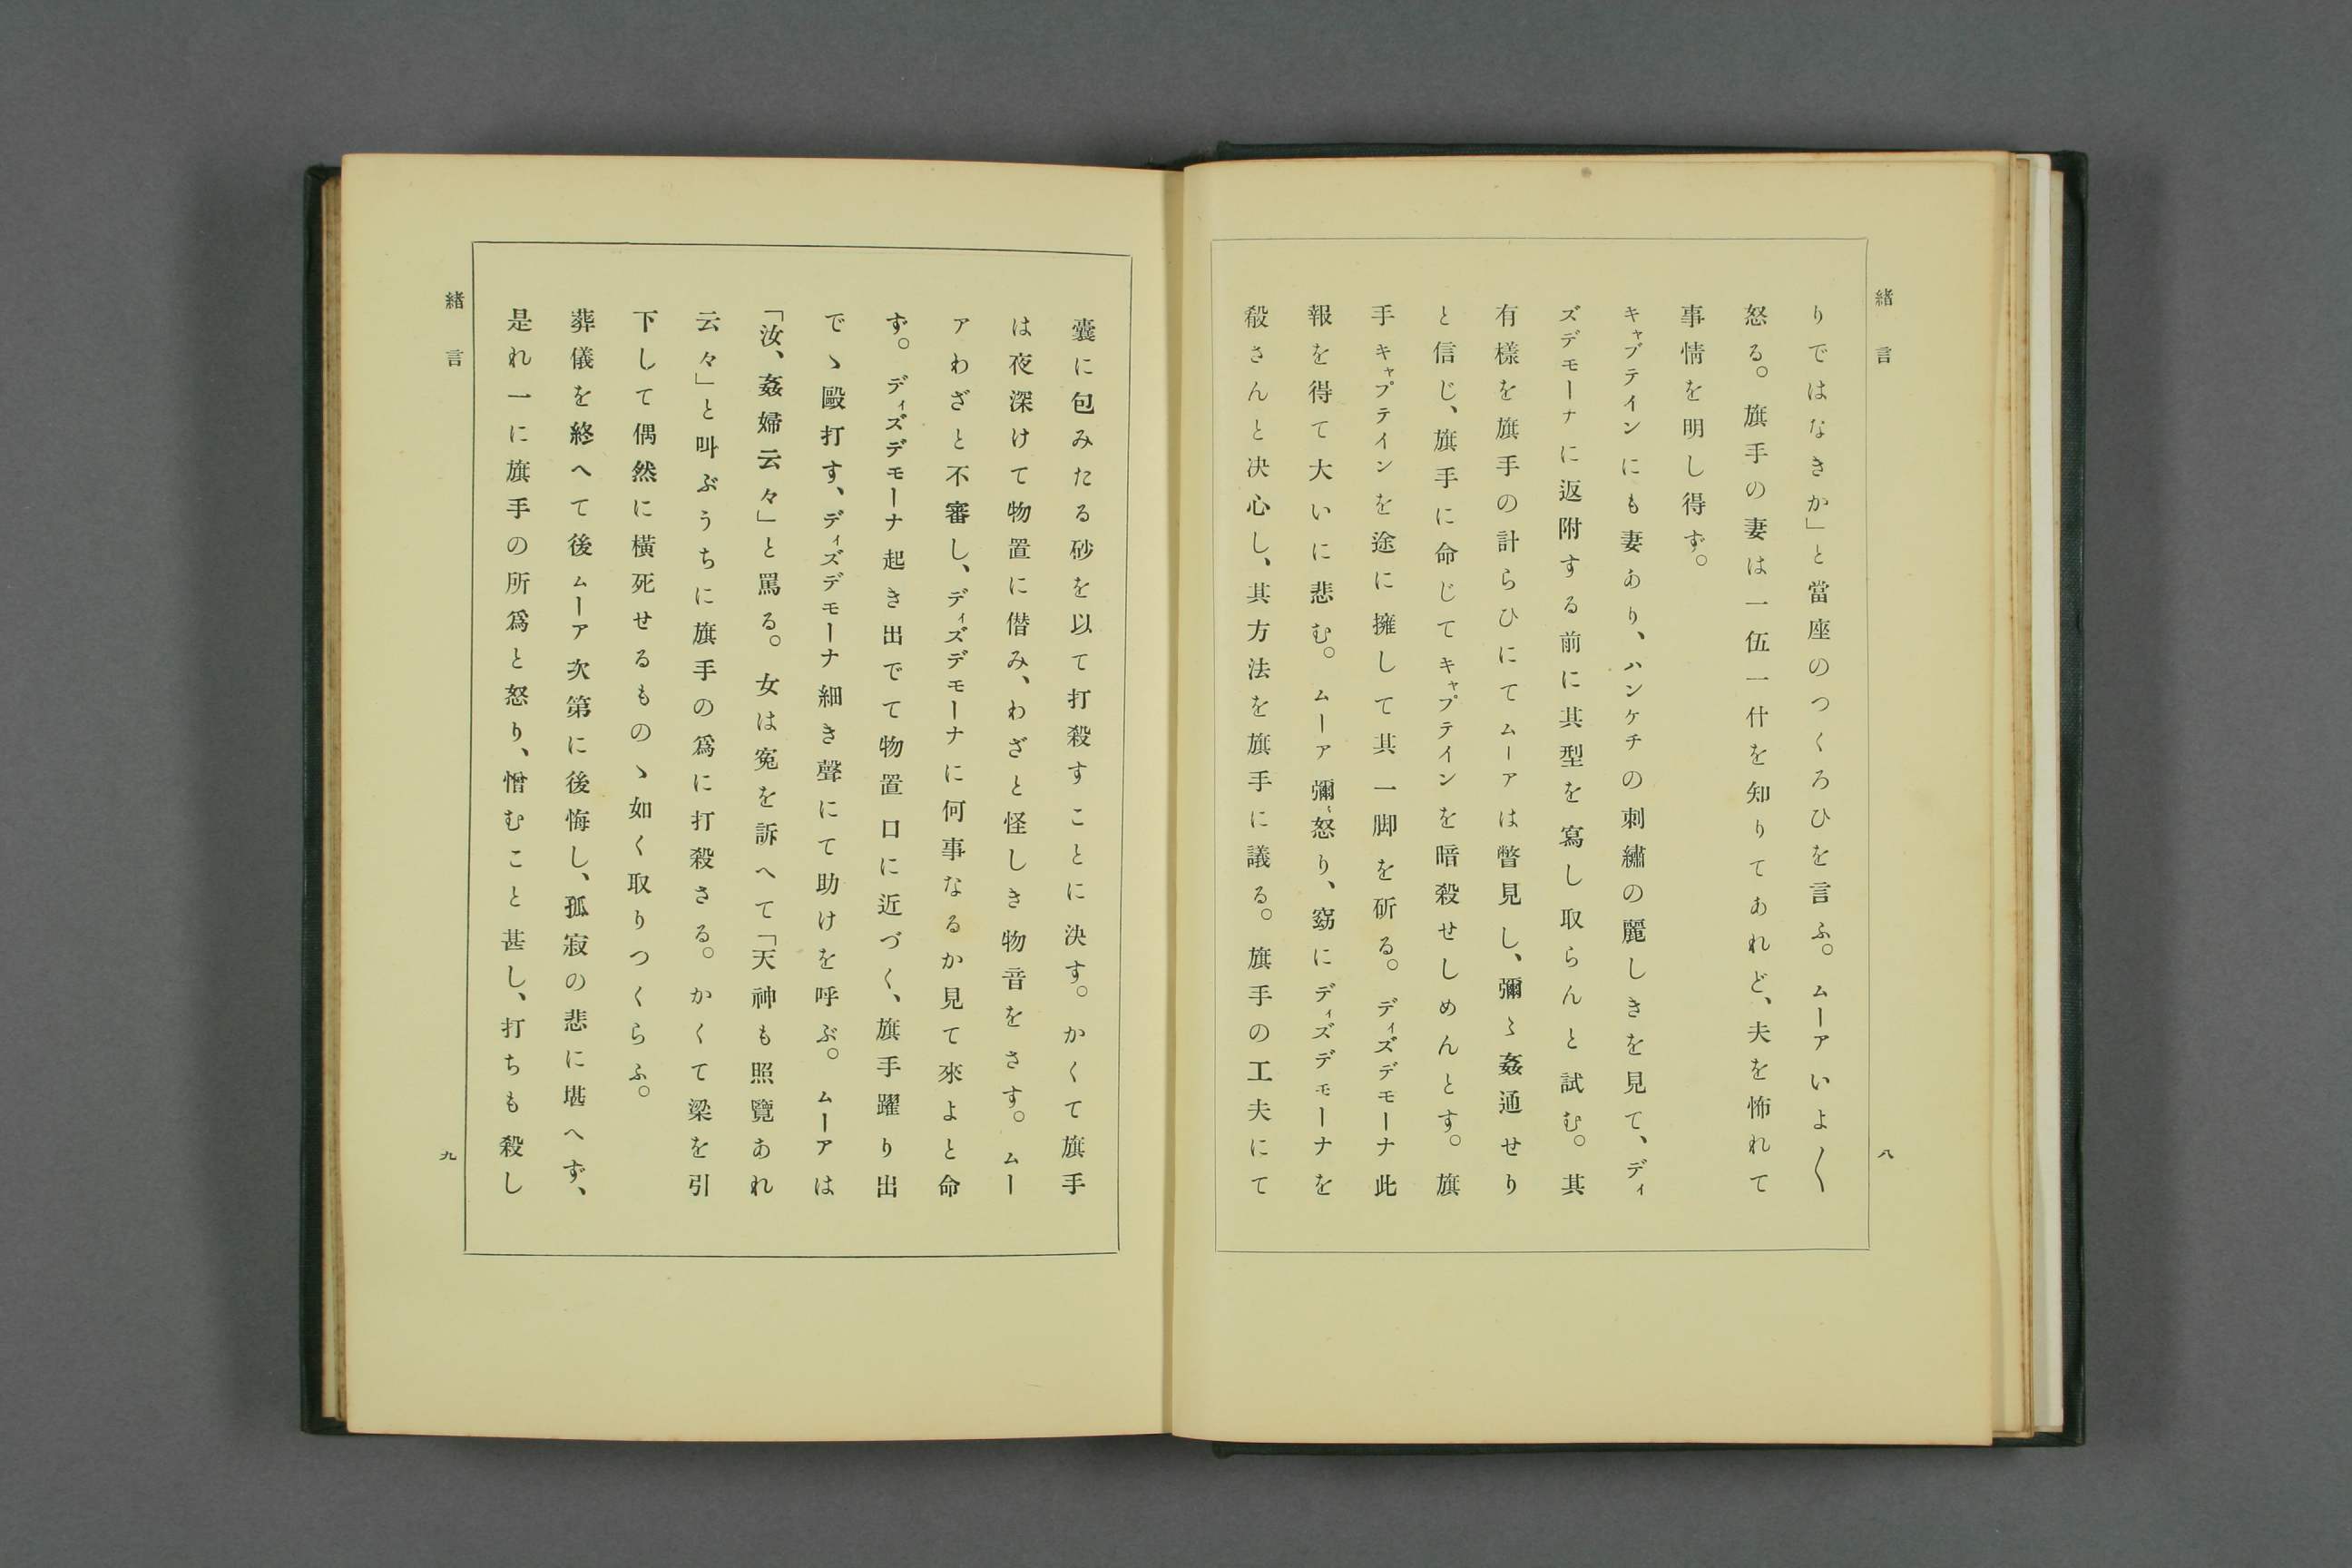 緒言
八
りではなきか」と當座のつくろひを言ふ。ムーアいよ〱
怒る。旗手の妻は一伍一什を知りてあれど、夫を怖れて
事情を明し得ず。
キャプテインにも妻あり、ハンケチの刺繡の麗しきを見て、ディ
ズデモーナに返附する前に其型を寫し取らんと試む。其
有樣を旗手の計らひにてムーアは瞥見し、彌〻姦通せり
と信じ、旗手に命じてキャプテインを暗殺せしめんとす。旗
手キャプテインを途に擁して其一脚を斫る。ディズデモーナ此
報を得て大いに悲む。ムーア彌〻怒り、竊にディズデモーナを
殺さんと决心し、其方法を旗手に議る。旗手の工夫にて
囊に包みたる砂を以て打殺すことに決す。かくて旗手
は夜深けて物置に僣み、わざと怪しき物音をさす。ムー
アわざと不審し、ディズデモーナに何事なるか見て來よと命
ず。ディズデモーナ起き出でて物置口に近づく、旗手躍り出
でゝ毆打す、ディズデモーナ細き聲にて助けを呼ぶ。ムーアは
「汝、姦婦云々」と罵る。女は寃を訴へて「天神も照覽あれ
云々」と叫ぶうちに旗手の爲に打殺さる。かくて梁を引
下して偶然に橫死せるものゝ如く取りつくらふ。
葬儀を終へて後ムーア次第に後悔し、孤寂の悲に堪へず、
是れ一に旗手の所爲と怒り、憎むこと甚し、打ちも殺し
緒言
九